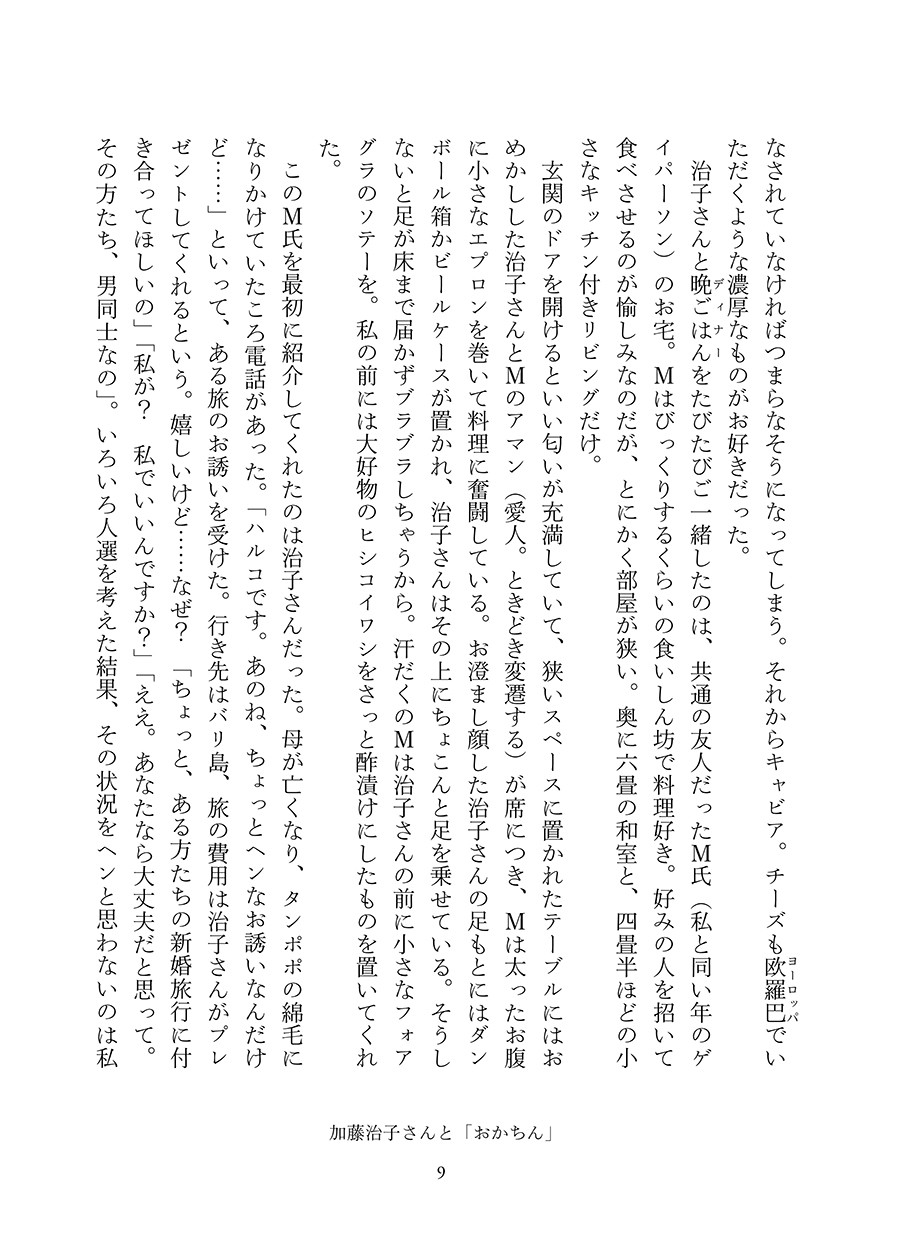 なされていなければつまらなそうになってしまう。それからキャビア。チーズも欧羅巴でい
ヨーロッパ
ただくような濃厚なものがお好きだった。
治子さんと晩ごはんをたびたびご一緒したのは、共通の友人だったM氏（私と同い年のゲ
ディナー
イパーソン）のお宅。Mはびっくりするくらいの食いしん坊で料理好き。好みの人を招いて
食べさせるのが愉しみなのだが、とにかく部屋が狭い。奥に六畳の和室と、四畳半ほどの小
さなキッチン付きリビングだけ。
玄関のドアを開けるといい匂いが充満していて、狭いスペースに置かれたテーブルにはお
めかしした治子さんとMのアマン（愛人。ときどき変遷する）が席につき、Mは太ったお腹
に小さなエプロンを巻いて料理に奮闘している。お澄まし顔した治子さんの足もとにはダン
ボール箱かビールケースが置かれ、治子さんはその上にちょこんと足を乗せている。そうし
ないと足が床まで届かずブラブラしちゃうから。汗だくのMは治子さんの前に小さなフォア
グラのソテーを。私の前には大好物のヒシコイワシをさっと酢漬けにしたものを置いてくれ
た。
このM氏を最初に紹介してくれたのは治子さんだった。母が亡くなり、タンポポの綿毛に
なりかけていたころ電話があった。「ハルコです。あのね、ちょっとヘンなお誘いなんだけ
ど……」といって、ある旅のお誘いを受けた。行き先はバリ島、旅の費用は治子さんがプレ
ゼントしてくれるという。嬉しいけど……なぜ？　「ちょっと、ある方たちの新婚旅行に付
き合ってほしいの」「私が？　私でいいんですか？」「ええ。あなたなら大丈夫だと思って。
その方たち、男同士なの」。いろいろ人選を考えた結果、その状況をヘンと思わないのは私
加藤治子さんと「おかちん」
9